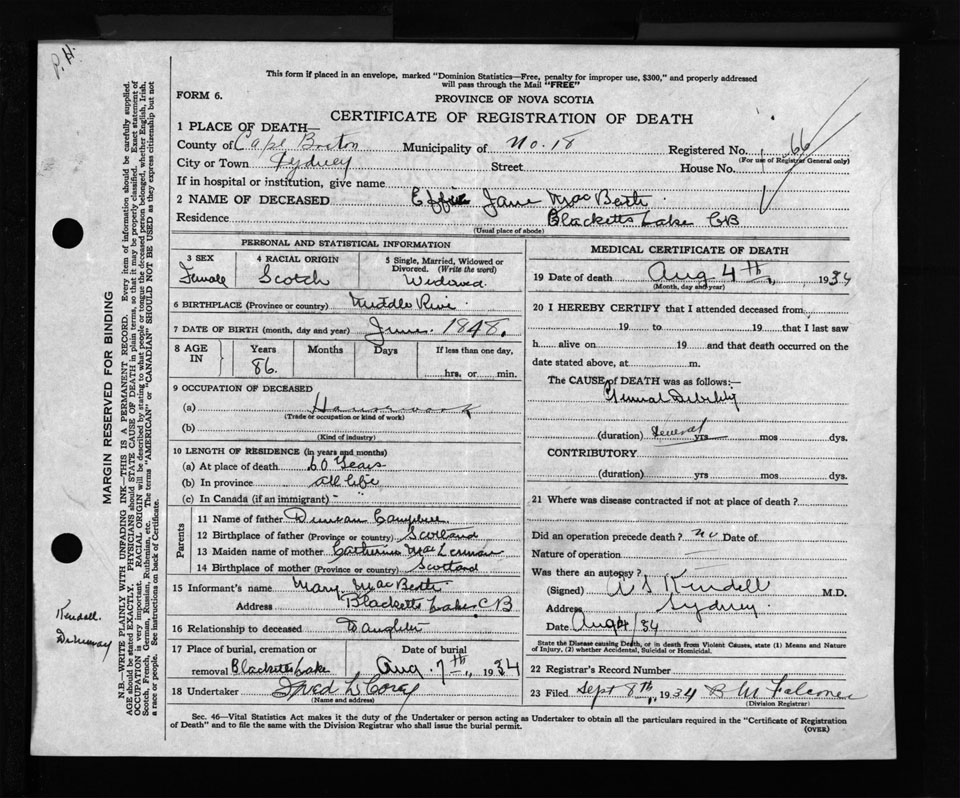 P.H.
This form if placed in an envelope, marked "Dominion Statistics—Free, penalty for improper use, $300," and properly addressed
will pass through the Mail "FREE"
FORM 6.
PROVINCE OF NOVA SCOTIA
CERTIFICATE OF REGISTRATION OF DEATH
1 PLACE OF DEATH—
County of Cape Breton Municipality of No. 18 Registered No. 66
(For use of Registrar General only)
City or Town Sydney Street House No.
If in hospital or institution, give name
2 NAME OF DECEASED Effie Jane MacBeth
Residence Blacketts Lake CB
(Usual place of abode)
PERSONAL AND STATISTICAL INFORMATION
3 SEX 4 RACIAL ORIGIN 5 Single, Married, Widowed or
Divorced. (Write the word)
Female Scotch Widowed
6 BIRTHPLACE (Province or country) Middle River
7 DATE OF BIRTH (month, day and year) June 1848.
8 AGE IN Years Months Days If less than one day,
86. hrs. or min.
9 OCCUPATION OF DECEASED
(a) Housework
(Trade or occupation or kind of work)
(b)
(Kind of industry)
10 LENGTH OF RESIDENCE (in years and months)
(a) At place of death 60 Years
(b) In province all life
(c) In Canada (if an immigrant) -
Parents
11 Name of father Duncan Campbell
12 Birthplace of father (Province or country) Scotland
13 Maiden name of mother Catherine MacLennan
14 Birthplace of mother (Province or country) Scotland
15 Informant's name Mary MacBeth
Address Blacketts Lake CB
16 Relationship to deceased Daughter
17 Place of burial, cremation or Date of burial
removal Blacketts Lake Aug. 7th, 1934
18 Undertaker Fred L Corey
(Name and address)
MEDICAL CERTIFICATE OF DEATH
19 Date of death Aug 4th, 1934
(Month, day and year)
20 I HEREBY CERTIFY that I attended deceased from
19 to 19 that I last saw
h alive on 19 and that death occurred on the
date stated above, at m.
The CAUSE of DEATH was as follows:—
General Debility
(duration) Several yrs mos dys.
CONTRIBUTORY
(duration) yrs mos dys.
21 Where was disease contracted if not at place of death?
Did an operation precede death? no Date of
Nature of operation
Was there an autopsy?
(Signed) Kendall M.D.
Address Sydney
Date Aug 4/34
State the Disease causing Death, or in death from Violent Causes, state (1) Means and Nature
of Injury, (2) whether Accidental, Suicidal or Homicidal.
22 Registrar's Record Number
23 Filed Sept 8th, 1934 B M Falconer
(Division Registrar)
Sec. 46—Vital Statistics Act makes it the duty of the Undertaker or person acting as Undertaker to obtain all the particulars required in the "Certificate of Registration
of Death" and to file the same with the Division Registrar who shall issue the burial permit. (OVER)
MARGIN RESERVED FOR BINDING
N.B.—WRITE PLAINLY WITH UNFADING INK—THIS IS A PERMANENT RECORD. Every item of information should be carefully supplied.
AGE should be stated EXACTLY. PHYSICIANS should STATE CAUSE OF DEATH in plain terms, so that it may be properly classified. Exact statement of
OCCUPATION is very important. RACIAL ORIGIN will be described by stating to what people or tongue the deceased person belonged, whether English, Irish,
Scotch, French, German, Russian, Ruthenian, etc. The terms "AMERICAN" or "CANADIAN" SHOULD NOT BE USED as they express citizenship but not
a race or people. See instructions on back of Certificate.
Kendall.